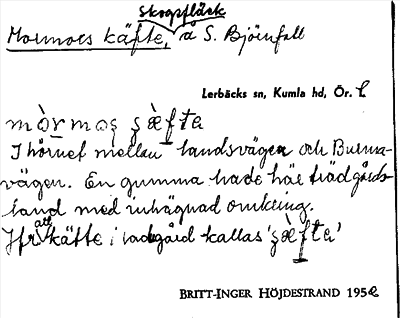 Skogsfläck
Mormors käfte, å S. Björnfall
Lerbäcks sn, Kumla hd, Ör. l.
mòrmosʂ ʂæ̀fta
I hörnet mellan landsvägen och Burma-
vägen. En gumma hade här trädgårds-
land med inhägnad omkring.
Jfr att käfte i ladugård kallas 'ʂæ̀fta'
BRITT-INGER HÖJDESTRAND 1952